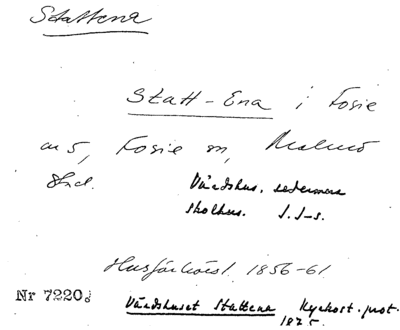 Stattena
Statt-Ena i Fosie
nr 5, Fosie sn, Malmö
Stad. Värdshus, sedermera
skolhus. S.J-s.
Husförhörsl. 1856-61
Nr 7220. Värdshuset Stattena Kyrkost. prot.
1875.